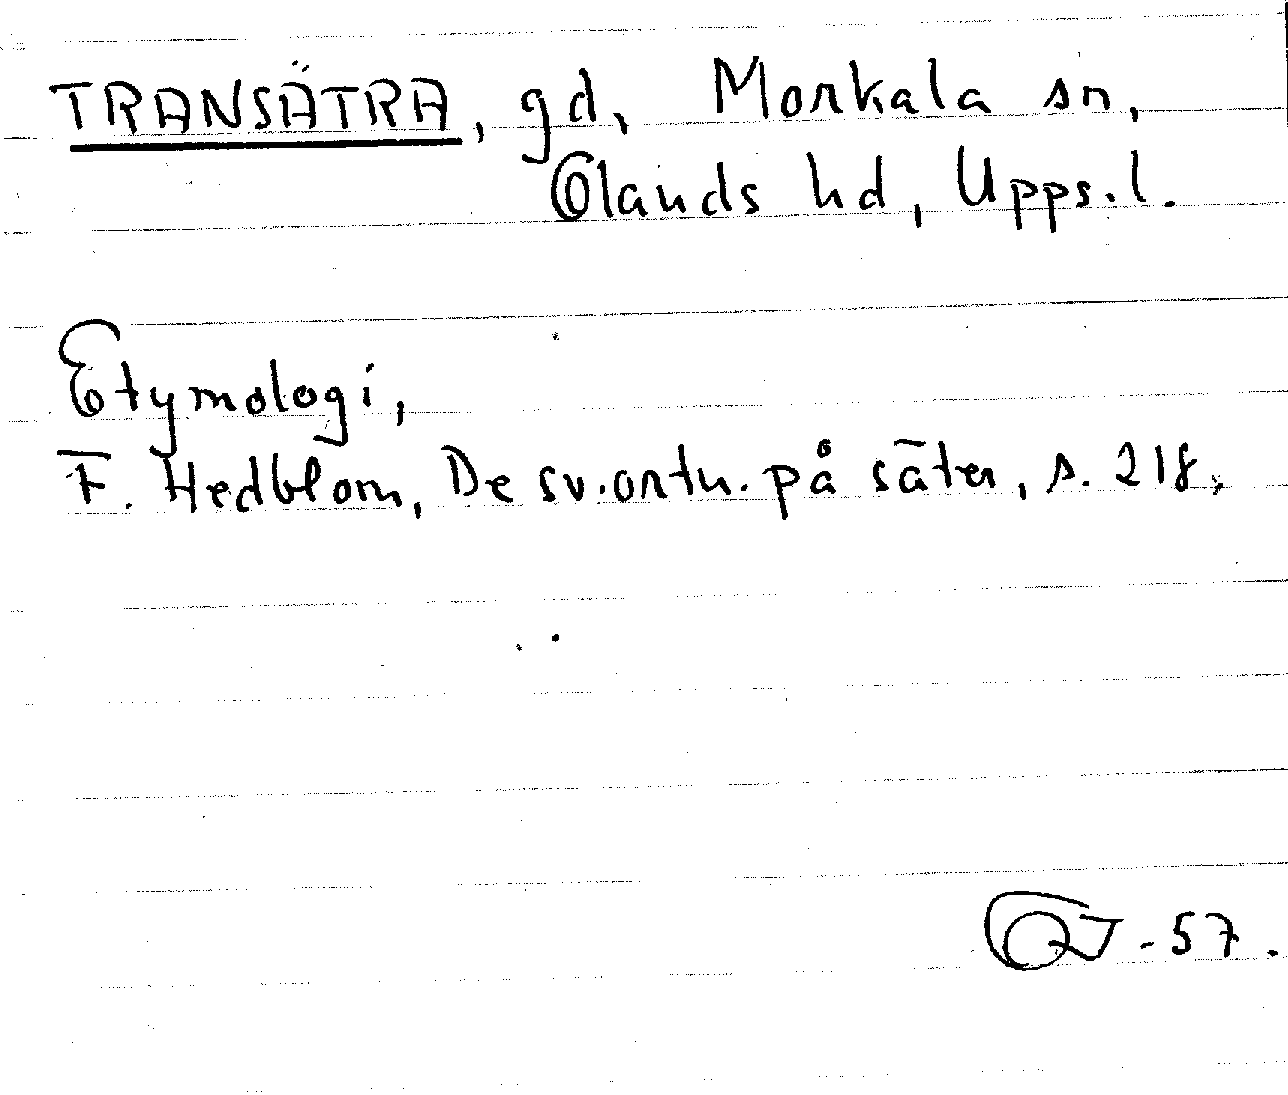 TRANSÄTRA, gd, Morkala sn,
Olands hd, Upps.l.
Etymologi,
F. Hedblom, De sv. ortn. på säter, s. 218,
-57.